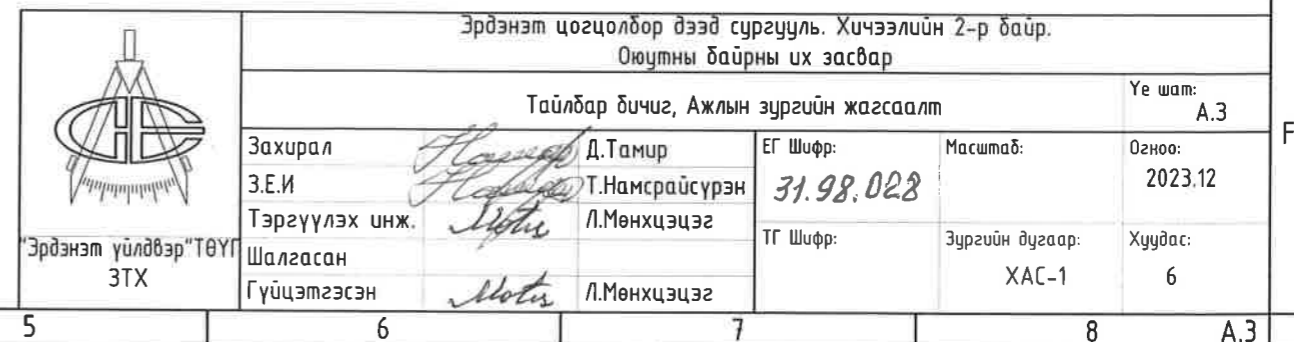 Эрдэнэт цогцолбор дээд сургууль. Хичээлийн 2-р байр.
Оюутны байрны их засвар
Тайлбар бичиг, Ажлын зургийн жагсаалт
Үе шат:
А.3
Захирал Д.Тамир
З.Е.И Т.Намсрайсүрэн
Тэргүүлэх инж. Л.Мөнхцэцэг
Шалгасан
Гүйцэтгэсэн Л.Мөнхцэцэг
"Эрдэнэт үйлдвэр"ТӨҮГ
ЗТХ
ЕГ Шифр:
31.98.028
Масштаб:
Огноо:
2023.12
ТГ Шифр:
Зургийн дугаар:
ХАС-1
Хуудас:
6
F
5 6 7 8 А.3